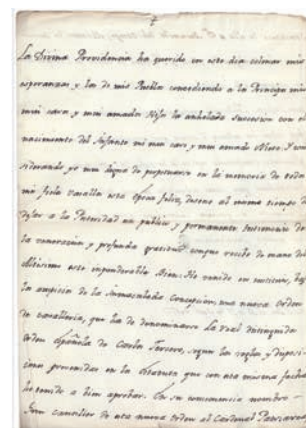 La Divina Providencia ha querido en este dia colmar mis
esperanzas, y las de mis Pueblos concediendo a la Princesa mi
mui cara, y mui amada Hija la anhelada succesion con el
nacimiento del Infante mi mui caro y mui amado Nieto. Y con
siderando yo mui digna de perpetuarse en la memoria de todos
mis fieles vasallos esta época feliz, deseo al mismo tiempo
dejar a la Posteridad un publico y permanente testimonio de
la veneracion y profunda gratitud conque recibo de mano del
Altisimo este imponderable Bien: He venido en instituir, bajo
los auspicios de la Inmaculada Concepcion, una nueva Orden
de cavalleria, que ha de denominarse La Real distinguida
Orden Española de Carlos Tercero, segun las reglas y disposi
ciones prevenidas en los Estatutos que con esta misma fecha
he tenido a bien aprobar. En su consecuencia nombro
Gran canciller de esta nueva orden al Cardenal Patriarca